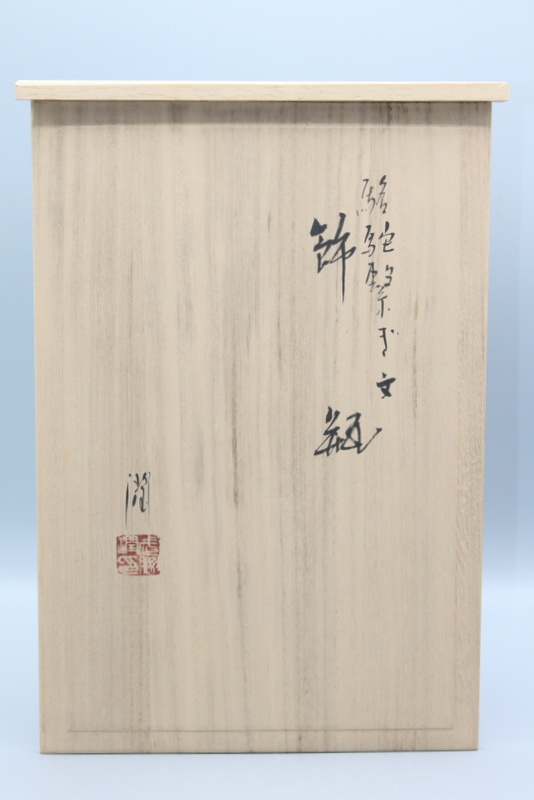 駱駝繋ぎ文
飾瓶
潤